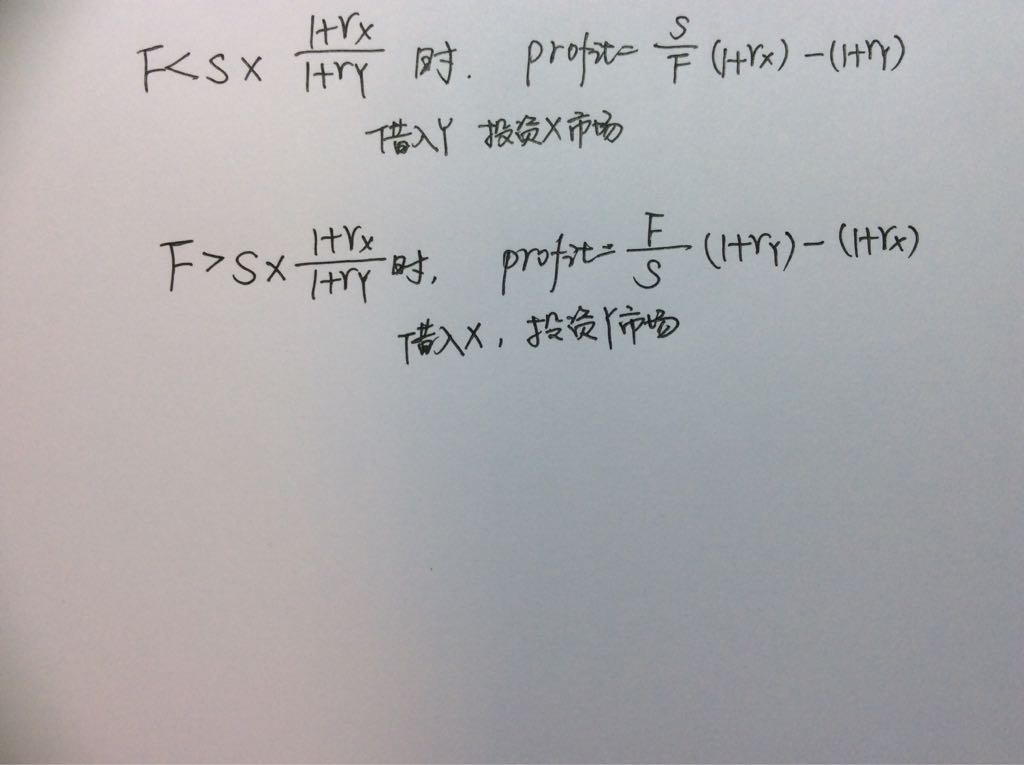 F < S × (1+rx)/(1+rY) 时. profit = S/F (1+rx) - (1+rY)
借入Y 投资X市场
F > S × (1+rx)/(1+rY) 时, profit = F/S (1+rY) - (1+rx)
借入X, 投资Y市场